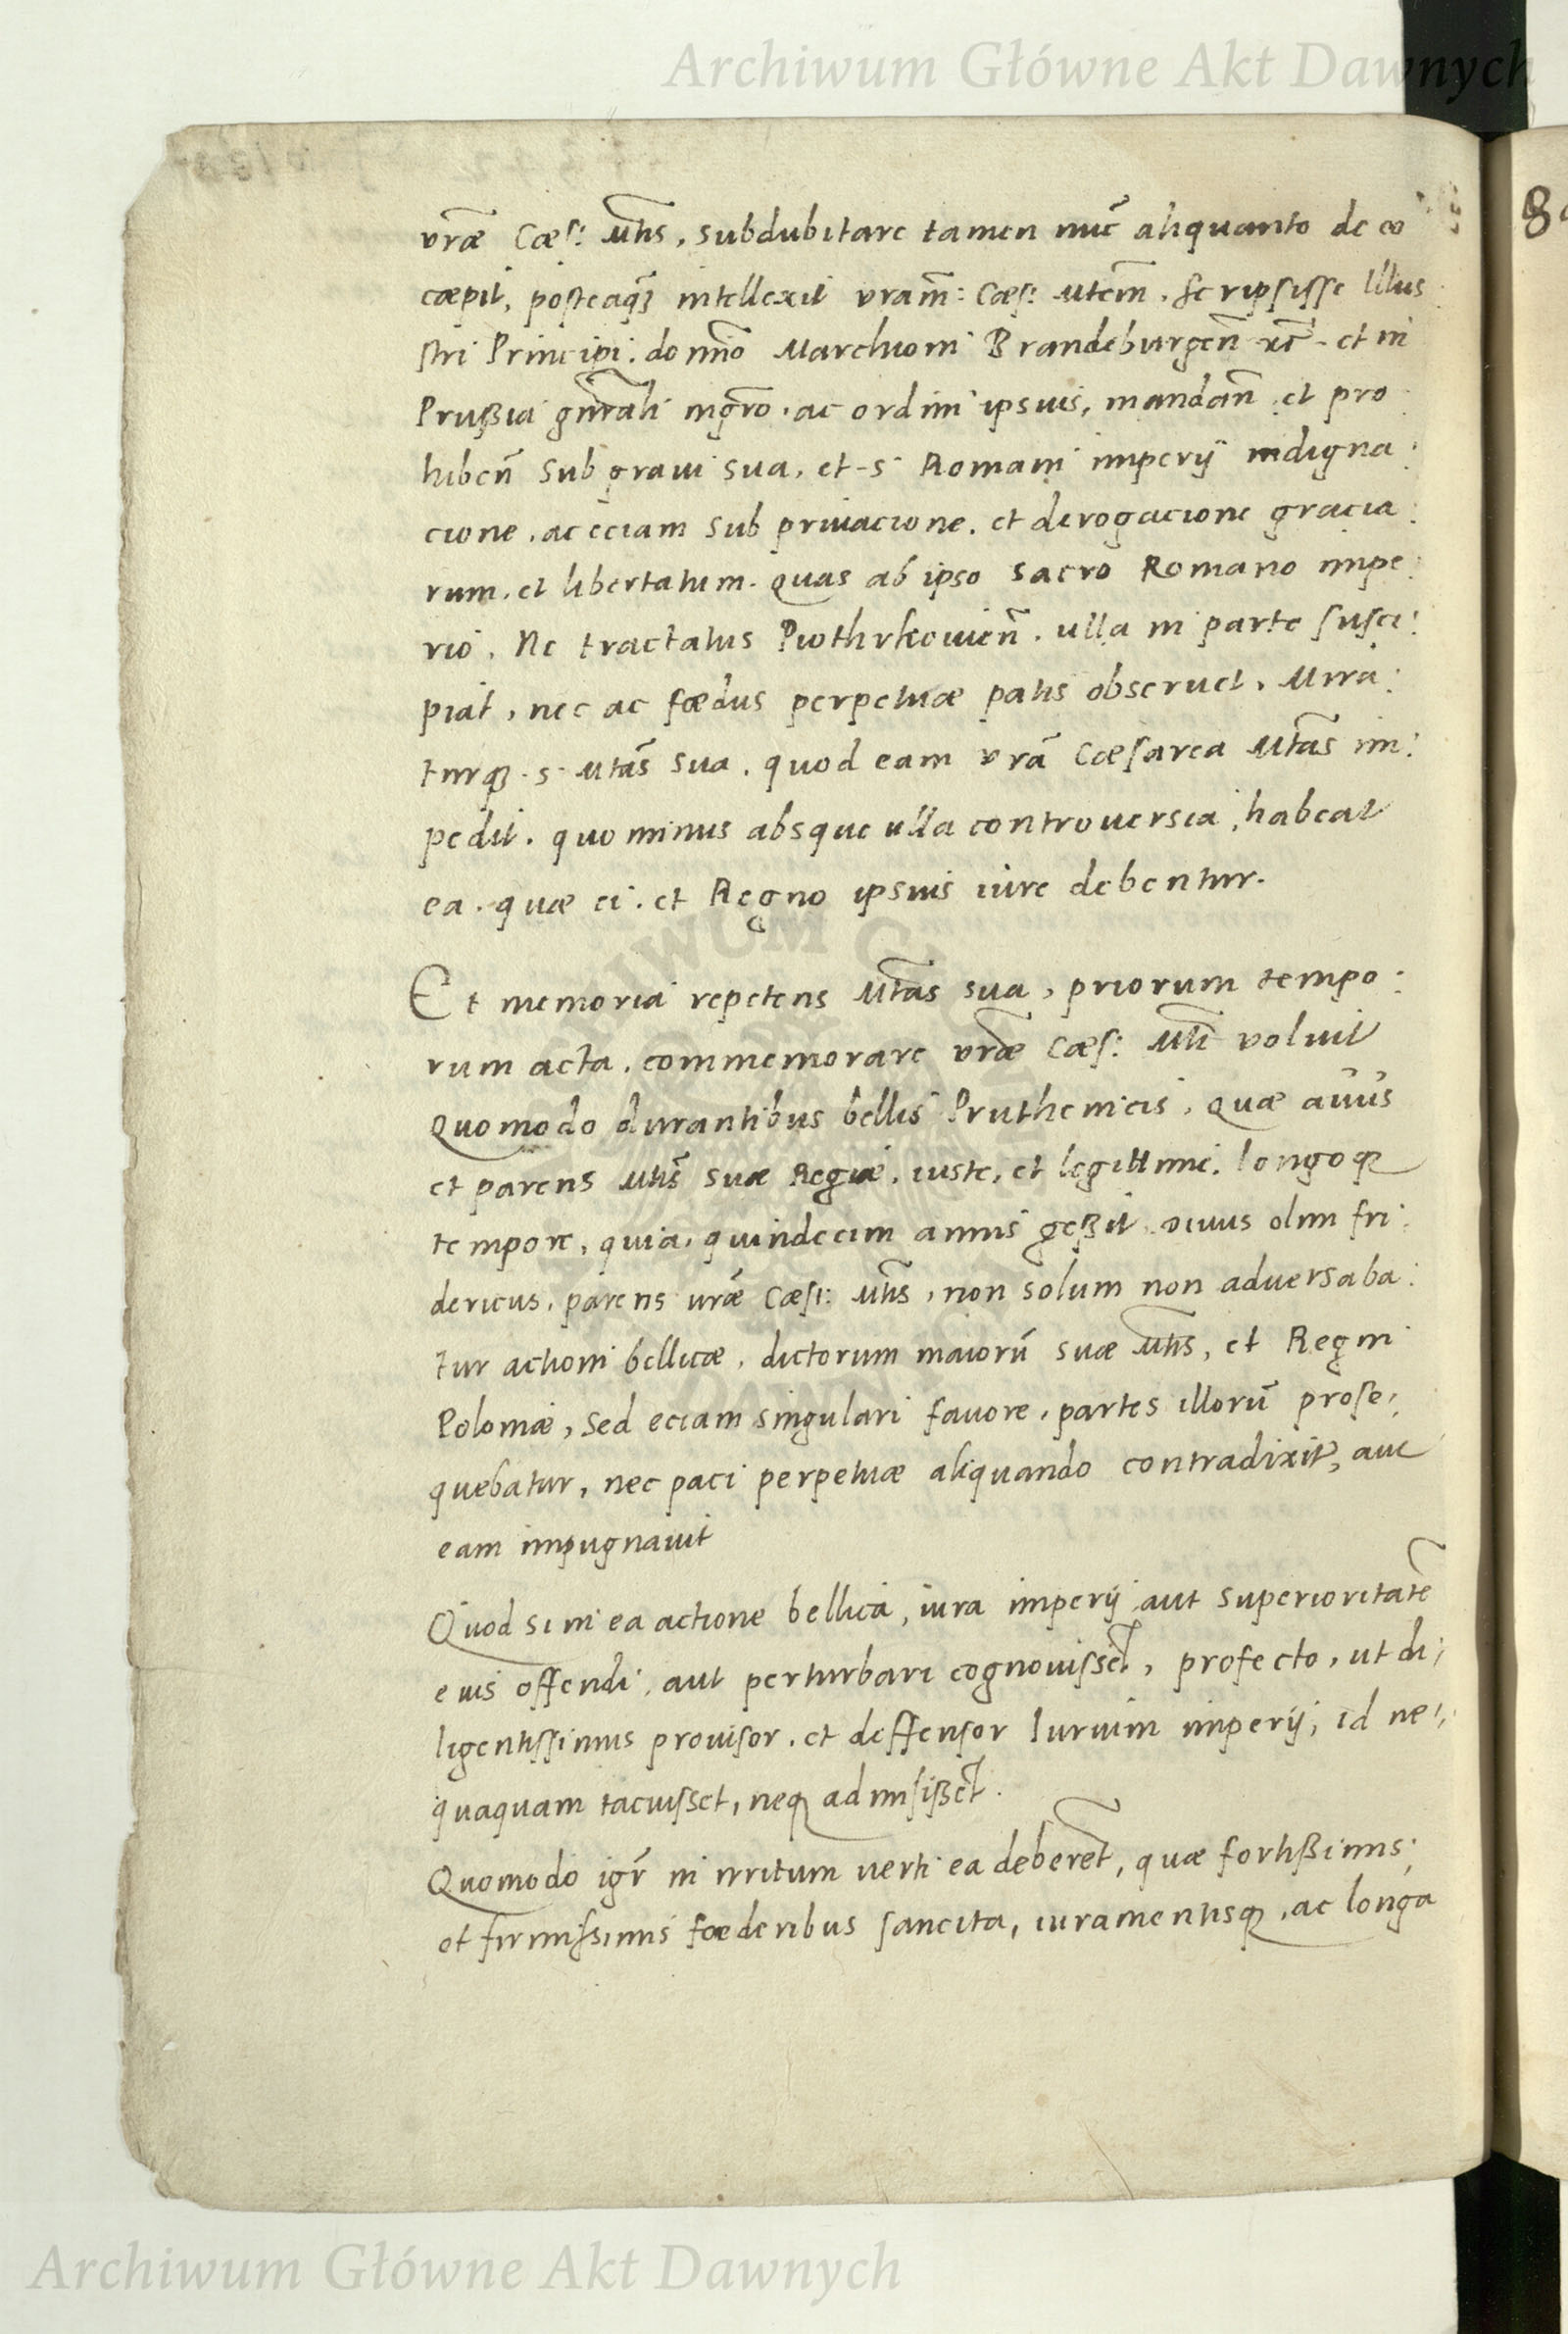 Archiwum Główne Akt Dawnych
vrãe Cæs: Mtis, subdubitare tamen nuc̃ aliquanto de eo
cæpit, posteaqȝ intellexit vram̃: Cæs: Mtem̃, scripsisse Illus
stri Principi: domiño Marchioni Brandeburgeñ xc̃. et in
Prußia gnr̃ali mgr̃o, ac ordini ipsius, mandañ et pro
hibeñ sub gravi sua, et S. Romani imperij indigna:
cione, ac eciam sub privacione, et derogacione gracia:
rum, et libertatum. quas ab ipso sacro Romano impe:
rio, Ne tractatus Piothrkovieñ, ulla in parte susci:
piat, nec ac fœdus perpetuæ patis observet, Mira:
turqȝ. S. Mtas̃ sua, quod eam vrã Cæsarea Mtas̃ im:
pedit, quo minus absque ulla controversia, habeat
ea, quæ ei, et Regno ipsius iure debentur.
Et memoria repetens Mtas̃ sua, priorum tempo:
rum acta, commemorare vrãe Cæs: Mti voluit
Quomodo durantibus bellis Pruthenicis, quæ avus
et parens Mtis̃ suæ Regiæ, iuste, et legittime, longoqȝ
tempore, quia, quindecim annis geßit divus olim fri:
dericus, parens vrãe Cæs: Mtis̃, non solum non adversaba:
tur actioni bellicæ, dictorum maiorũ suæ Mtis̃, et Regni
Poloniæ, Sed eciam singulari favore, partes illorũ prose:
quebatur, nec paci perpetuæ aliquando contradixit, aut
eam impugnavit
Quod si in ea actione bellica, iura imperij aut superioritatẽ
eius offendi, aut perturbari cognovisset, profecto, ut di:
ligentissimus provisor, et deffensor Iurium imperij, id ne:
quaquam tacuisset, neqȝ admisißet.
Quomodo igr̃ in irritum verti ea deberet, quæ fortißimis,
et firmissimis fœderibus sancita, iuramentisqȝ, ac longa
Archiwum Główne Akt Dawnych